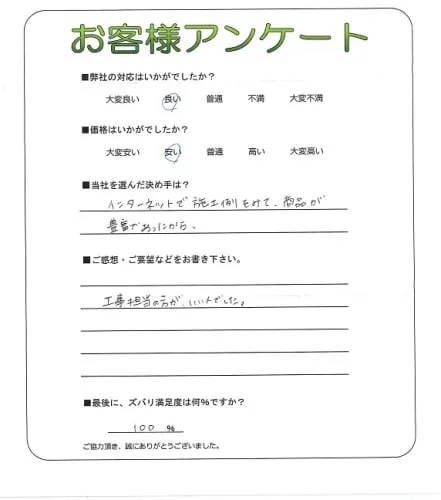 お客様アンケート
■弊社の対応はいかがでしたか？
大変良い 良い 普通 不満 大変不満
■価格はいかがでしたか？
大変安い 安い 普通 高い 大変高い
■当社を選んだ決め手は？
インターネットで施工例をみて、商品が
豊富であったから。
■ご感想・ご要望などをお書き下さい。
工事担当の方が、いい人でした。
■最後に、ズバリ満足度は何%ですか？
100 %
ご協力頂き、誠にありがとうございました。